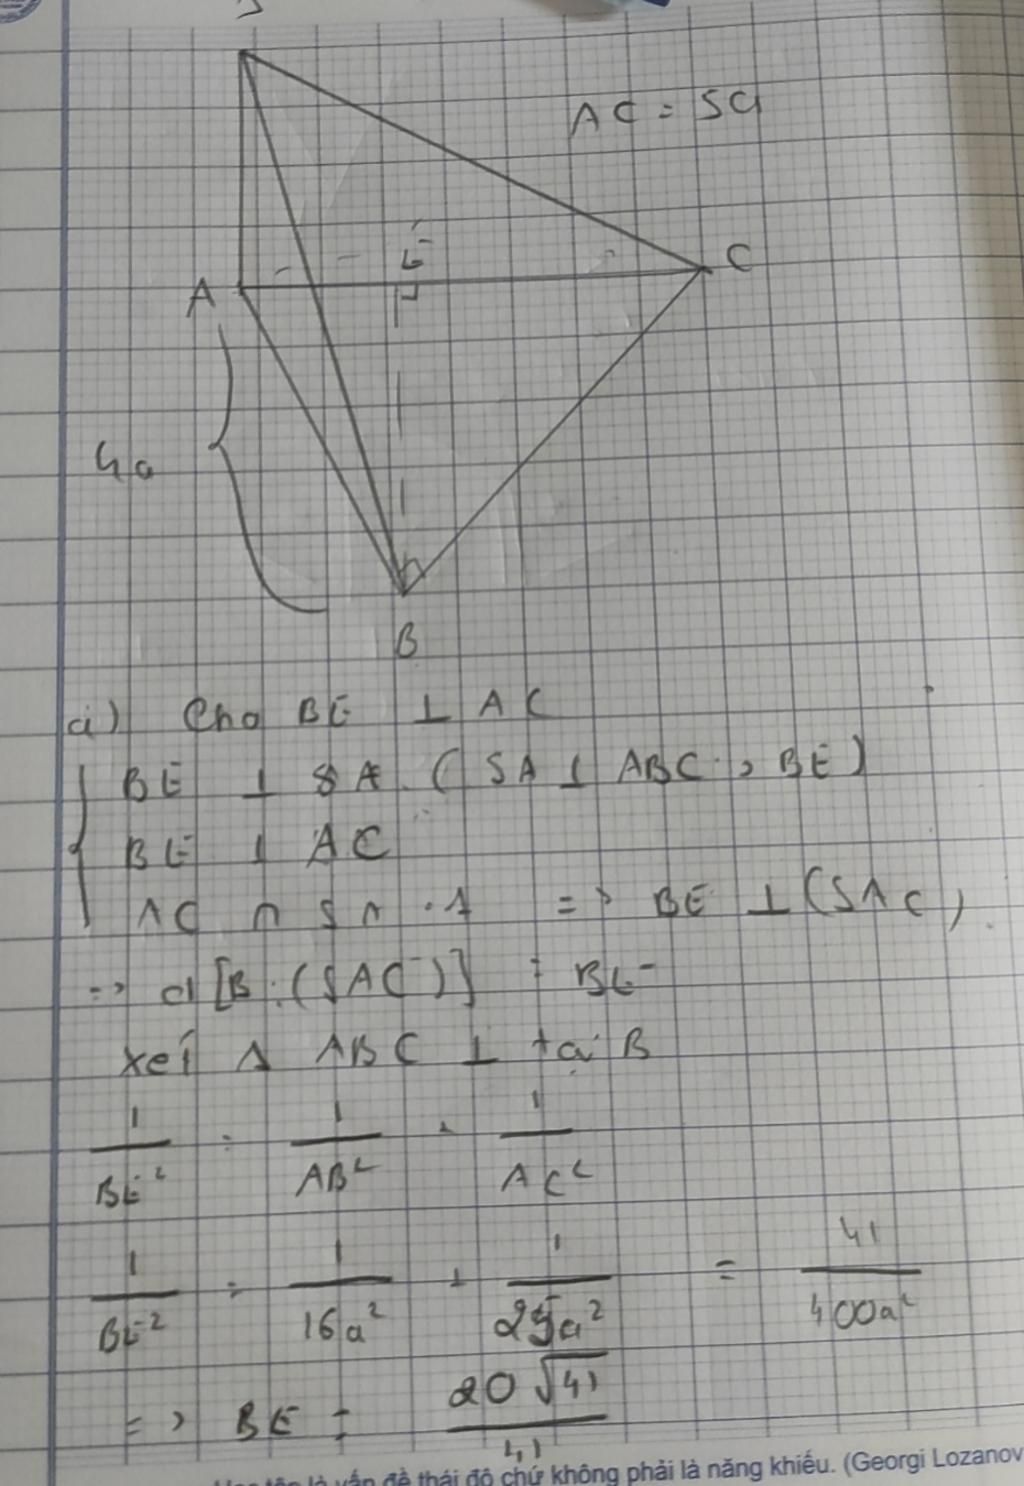 AC = 5a
E
C
A
4a
B
a) Cho BE ⊥ AC
BE ⊥ SA (SA ⊥ ABC ⊃ BE)
BE ⊥ AC
AC ∩ SA · A => BE ⊥ (SAC)
=> d[B; (SAC)] = BE
xét Δ ABC ⊥ tại B
1/BE² = 1/AB² + 1/AC²
1/BE² = 1/16a² + 1/25a² = 41/400a²
=> BE = 20√41/41
là vấn đề thái độ chứ không phải là năng khiếu. (Georgi Lozanov